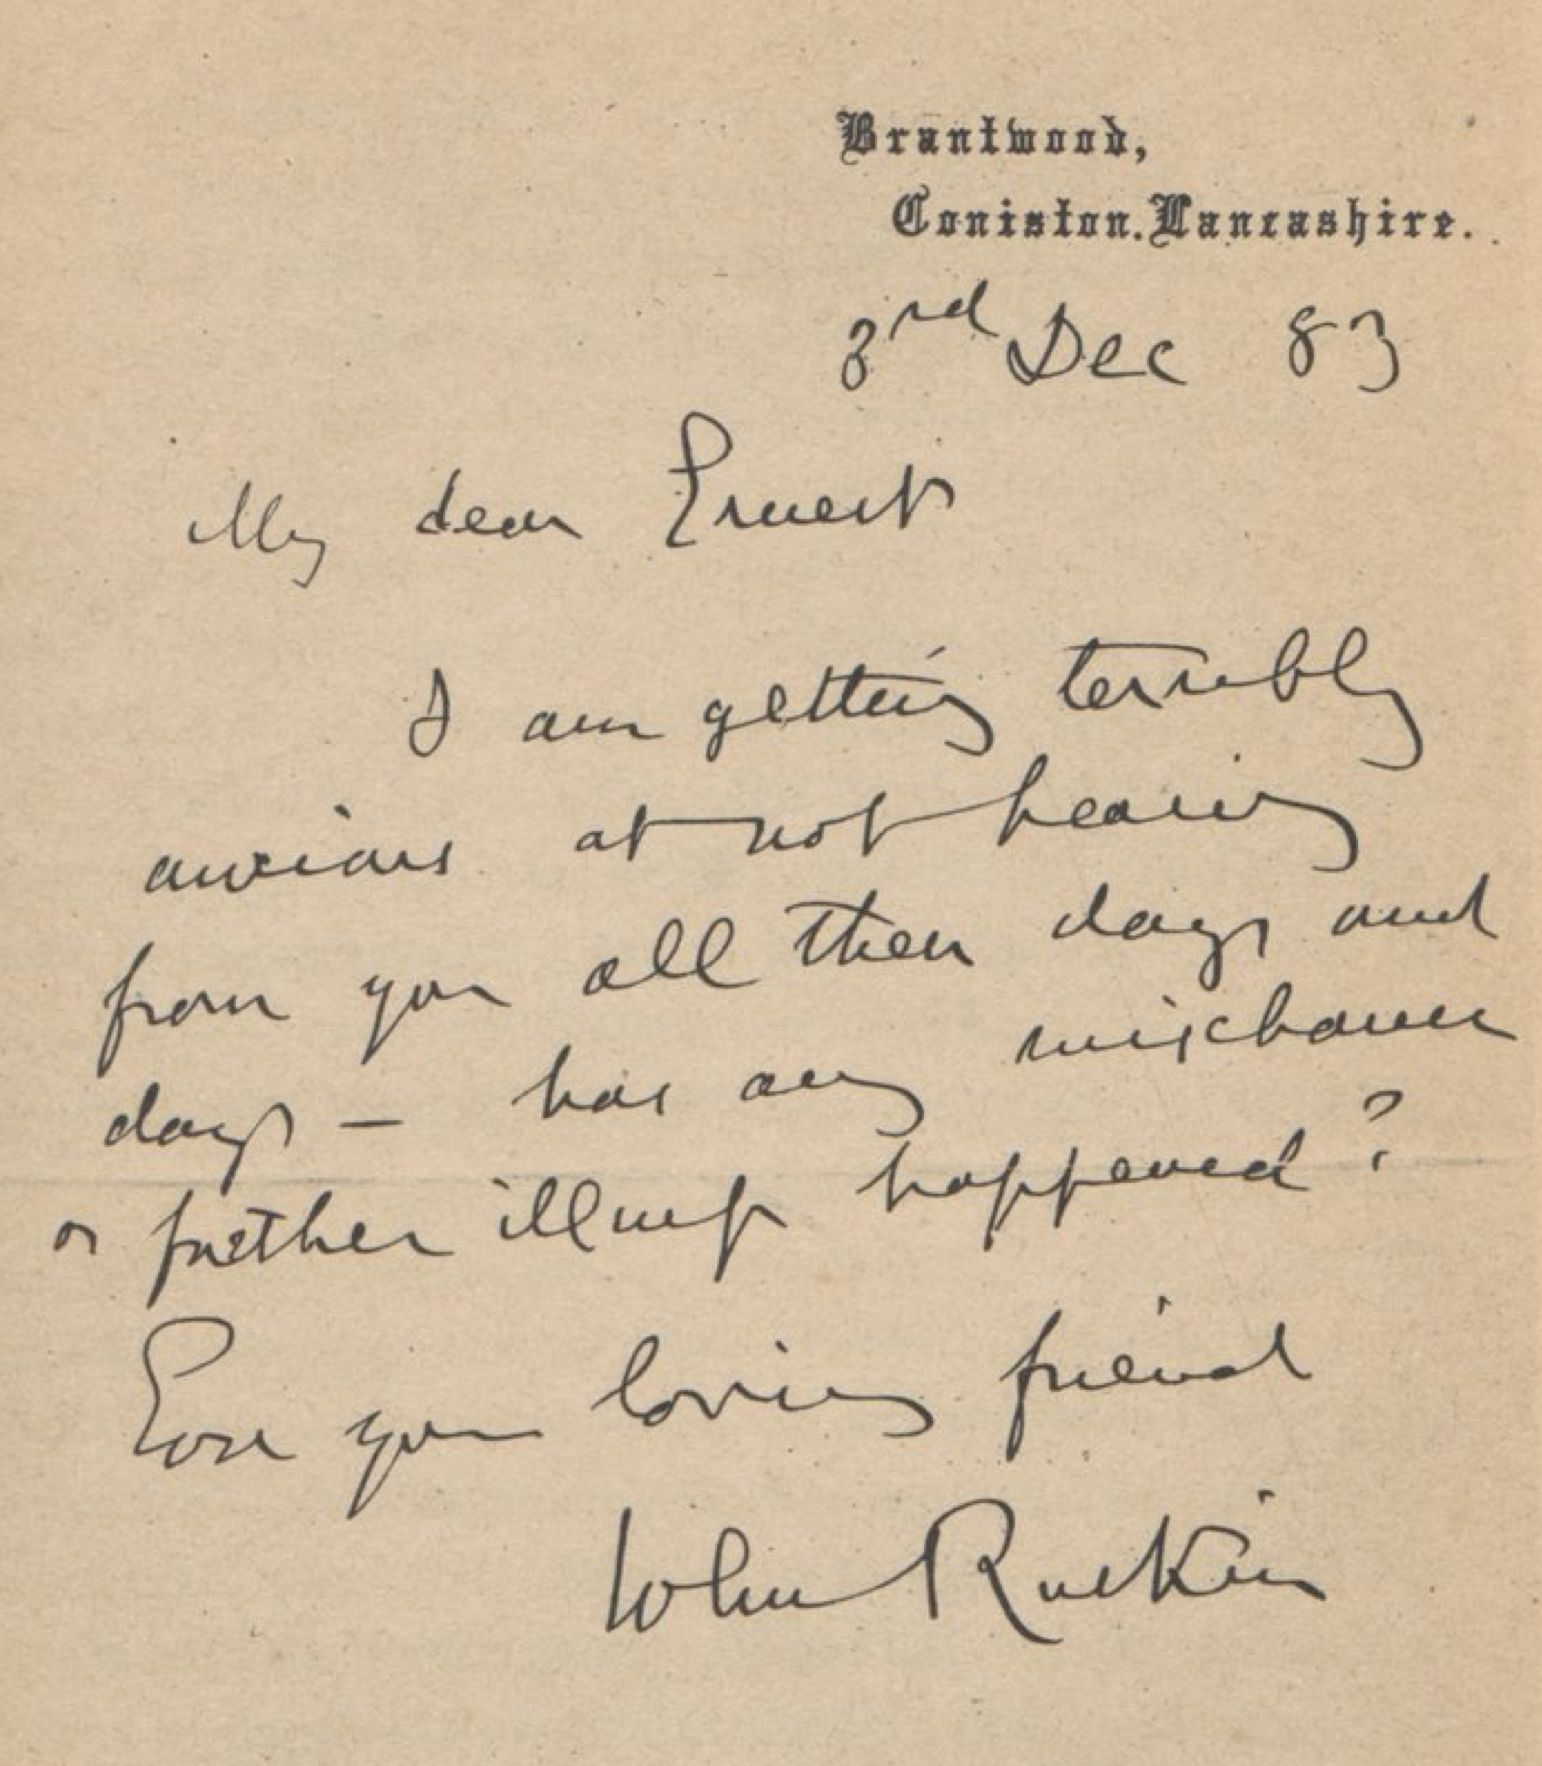 Brantwood,
Coniston. Lancashire.
3rd Dec 83
My dear Ernest
I am getting terribly
anxious at not hearing
from you all these days and
days – has any mischance
or further illness happened?
Ever your loving friend
John Ruskin